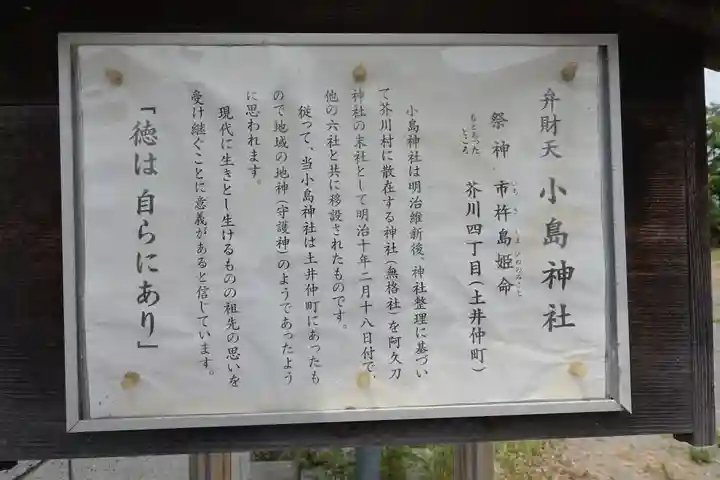 弁財天 小島神社
祭神 市杵島姫命
いちきしまひめのみこと
もとあったところ 芥川四丁目(土井仲町)
小島神社は明治維新後、神社整理に基づい
て芥川村に散在する神社(無格社)を阿久刀
神社の末社として明治十年二月十八日付で、
他の六社と共に移設されたものです。
従って、当小島神社は土井仲町にあったも
ので地域の地神(守護神)のようであったよう
に思われます。
現代に生きとし生けるものの祖先の思いを
受け継ぐことに意義があると信じています。
「徳は自らにあり」